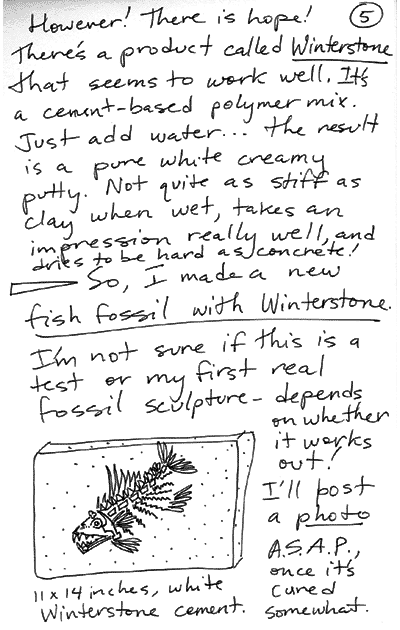 However! There is hope! 5
There's a product called Winterstone
that seems to work well. It's
a cement-based polymer mix.
Just add water... the result
is a pure white creamy
putty. Not quite as stiff as
clay when wet, takes an
impression really well, and
dries to be hard as concrete!
So, I made a new
fish fossil with Winterstone.
I'm not sure if this is a
test or my first real
fossil sculpture - depends
on whether
it works
out!
I'll post
a photo
A.S.A.P.,
once it's
cured
somewhat.
11 x 14 inches, white
Winterstone cement.